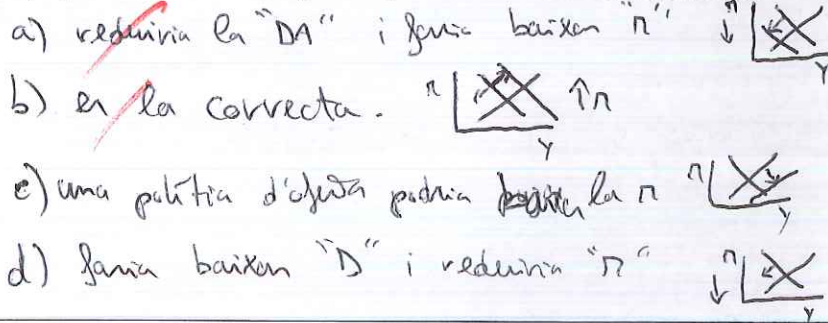 a) reduiria la "DA" i faria baixar "π" ↓π Y
b) és la correcta. π ↑π Y
c) una política d'oferta podria baixar la π π Y
d) faria baixar "D" i reduiria "π" ↓π Y